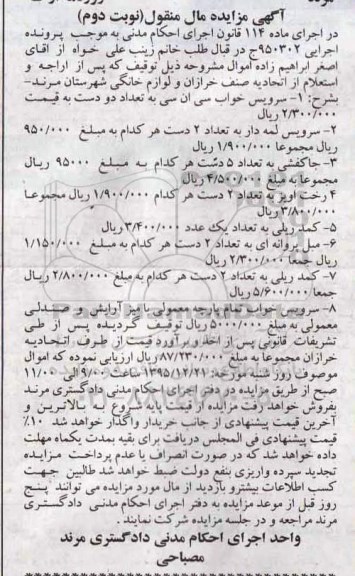 آگهی مزایده مال منقول(نوبت دوم)
در اجرای ماده ۱۱۴ قانون اجرای احکام مدنی به موجب پرونده
اجرایی ۹۵۰۳۰۲ج در قبال طلب خانم زینب علی خواه از آقای
اصغر ابراهیم زاده اموال مشروحه ذیل توقیف که پس از اراجه و
استعلام از اتحادیه صنف خرازان و لوازم خانگی شهرستان مرند-
بشرح: ۱- سرویس خواب سی ان سی به تعداد دو دست به قیمت
۲/۳۰۰/۰۰۰ ریال
۲- سرویس لمه دار به تعداد ۲ دست هر کدام به مبلغ ۹۵۰/۰۰۰
ریال مجموعا ۱/۹۰۰/۰۰۰ ریال
۳- جاکفشی به تعداد ۵ دست هر کدام به مبلغ ۹۵۰۰۰ ریال
مجموعا به مبلغ ۴/۵۰۰/۰۰۰ ریال
۴ رخت آویز به تعداد ۲ دست هر کدام ۱/۹۰۰/۰۰۰ ریال مجموعا
۳/۸۰۰/۰۰۰ ریال
۵- کمد ریلی به تعداد یک عدد ۳/۴۰۰/۰۰۰ ریال
۶- مبل پروانه ای به تعداد ۲ دست هر کدام به مبلغ ۱/۱۵۰/۰۰۰
ریال جمعا ۲/۳۰۰/۰۰۰ ریال
۷- کمد ریلی به تعداد ۲ دست هر کدام به مبلغ ۲/۸۰۰/۰۰۰ ریال
جمعا ۵/۶۰۰/۰۰۰ ریال
۸- سرویس خواب تمام پارچه معمولی با میز آرایش و صندلی
معمولی به مبلغ ۵۰۰۰/۰۰۰ ریال توقیف گردیده پس از طی
تشریفات قانونی پس از اخذ و برآورد قیمت از طرف اتحادیه
خرازان مجموعا به مبلغ ۸۷/۲۳۰/۰۰۰ ریال ارزیابی نموده که اموال
موصوف روز شنبه مورخه: ۱۳۹۵/۱۲/۲۱ ساعت ۹/۰۰ الی ۱۱/۰۰
صبح از طریق مزایده در دفتر اجرای احکام مدنی دادگستری مرند
بفروش خواهد رفت مزایده از قیمت پایه شروع به بالاترین و
آخرین قیمت پیشنهادی از جانب خریدار واگذار خواهد شد ۱۰٪
قیمت پیشنهادی فی المجلس دریافت برای بقیه بمدت یکماه مهلت
داده خواهد شد که در صورت انصراف یا عدم پرداخت مزایده
تجدید سپرده واریزی بنفع دولت ضبط خواهد شد طالبین جهت
کسب اطلاعات بیشترو بازدید از مال مورد مزایده می توانند پنج
روز قبل از موعد مزایده به دفتر اجرای احکام مدنی دادگستری
مرند مراجعه و در جلسه مزایده شرکت نمایند .
واحد اجرای احکام مدنی دادگستری مرند
مصباحی